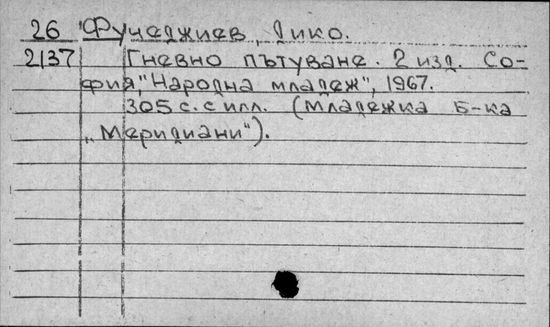 26 Фучеджиев, Дико.
2137 Гневно пътуване. 2 изд. Со-
фия, "Народна младеж", 1967.
305 с. с илл. (Младежка б-ка
„Меридиани").